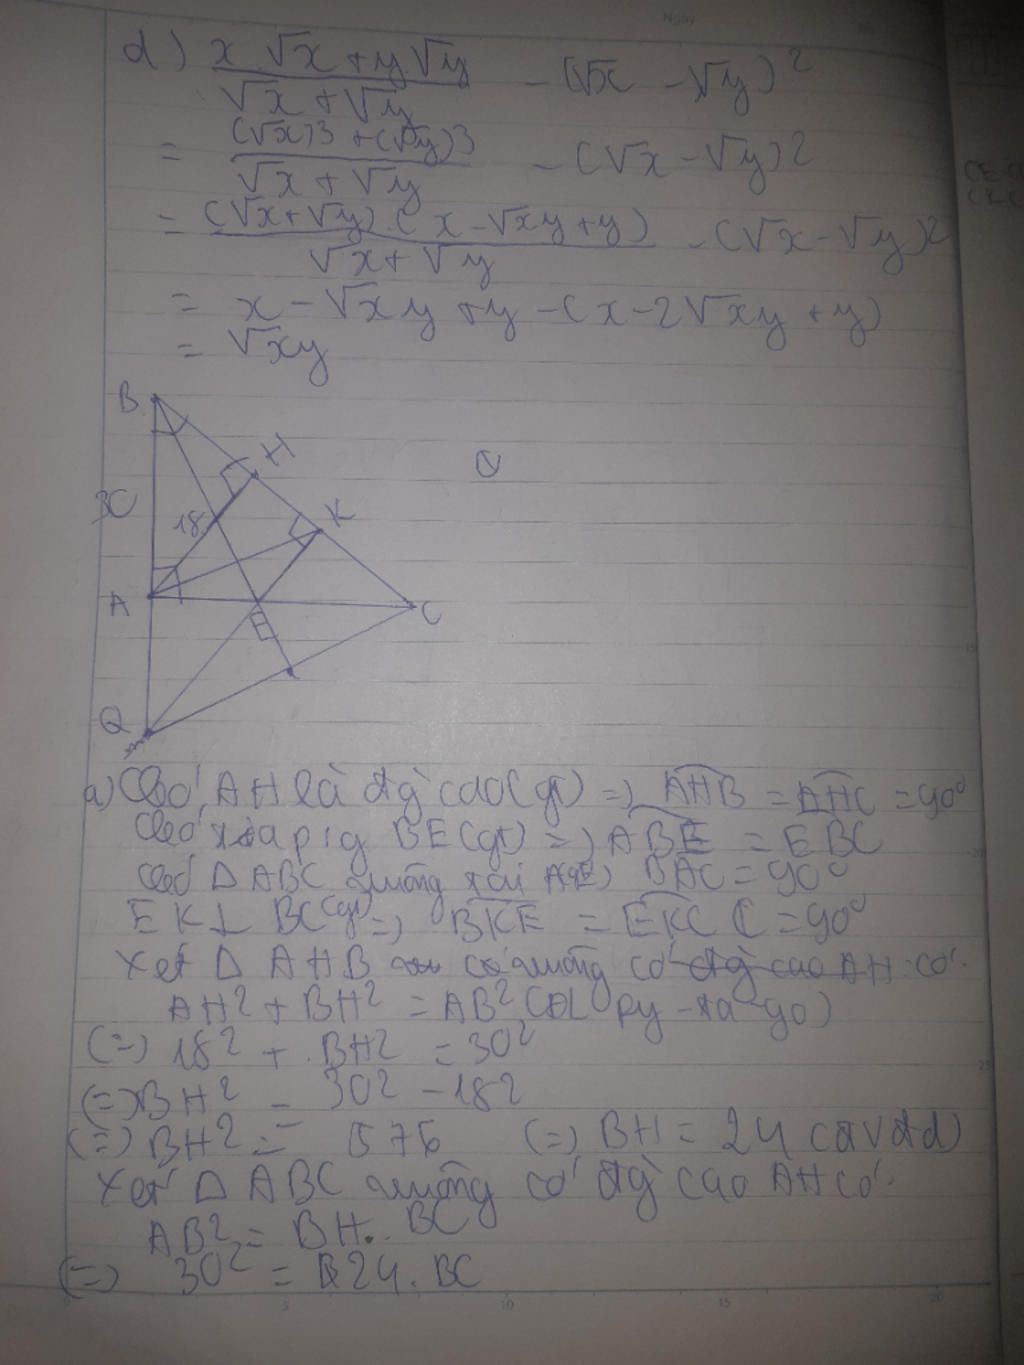 d) x√x + y.√y / √x + √y - (√x - √y)²
= (√x)3 + (√y)3 / √x + √y - (√x - √y)2
= (√x + √y).(x - √xy + y) / √x + √y - (√x - √y)2
= x - √xy + y - (x - 2√xy + y)
= √xy
B
H
30
18
K
A
E
C
Q
a) Có AH là đg cao (gt) => AHB = AHC = 90⁰
Có BE (gt) => ABE = EBC
Có Δ ABC vuông tại A => BAC = 90⁰
EK⊥ BC (gt) => BKE = EKC = 90⁰
Xét Δ AHB vuông có
AH² + BH² = AB² (ĐL Py-ta-go)
(=) 18² + BH2 = 30²
(=) BH² = 302 - 182
(=) BH² = 576 (=) BH = 24 (đvđd)
Xét Δ ABC vuông có đg cao AH có:
AB² = BH. BC
(=) 30² = 24. BC
5
10
15
20